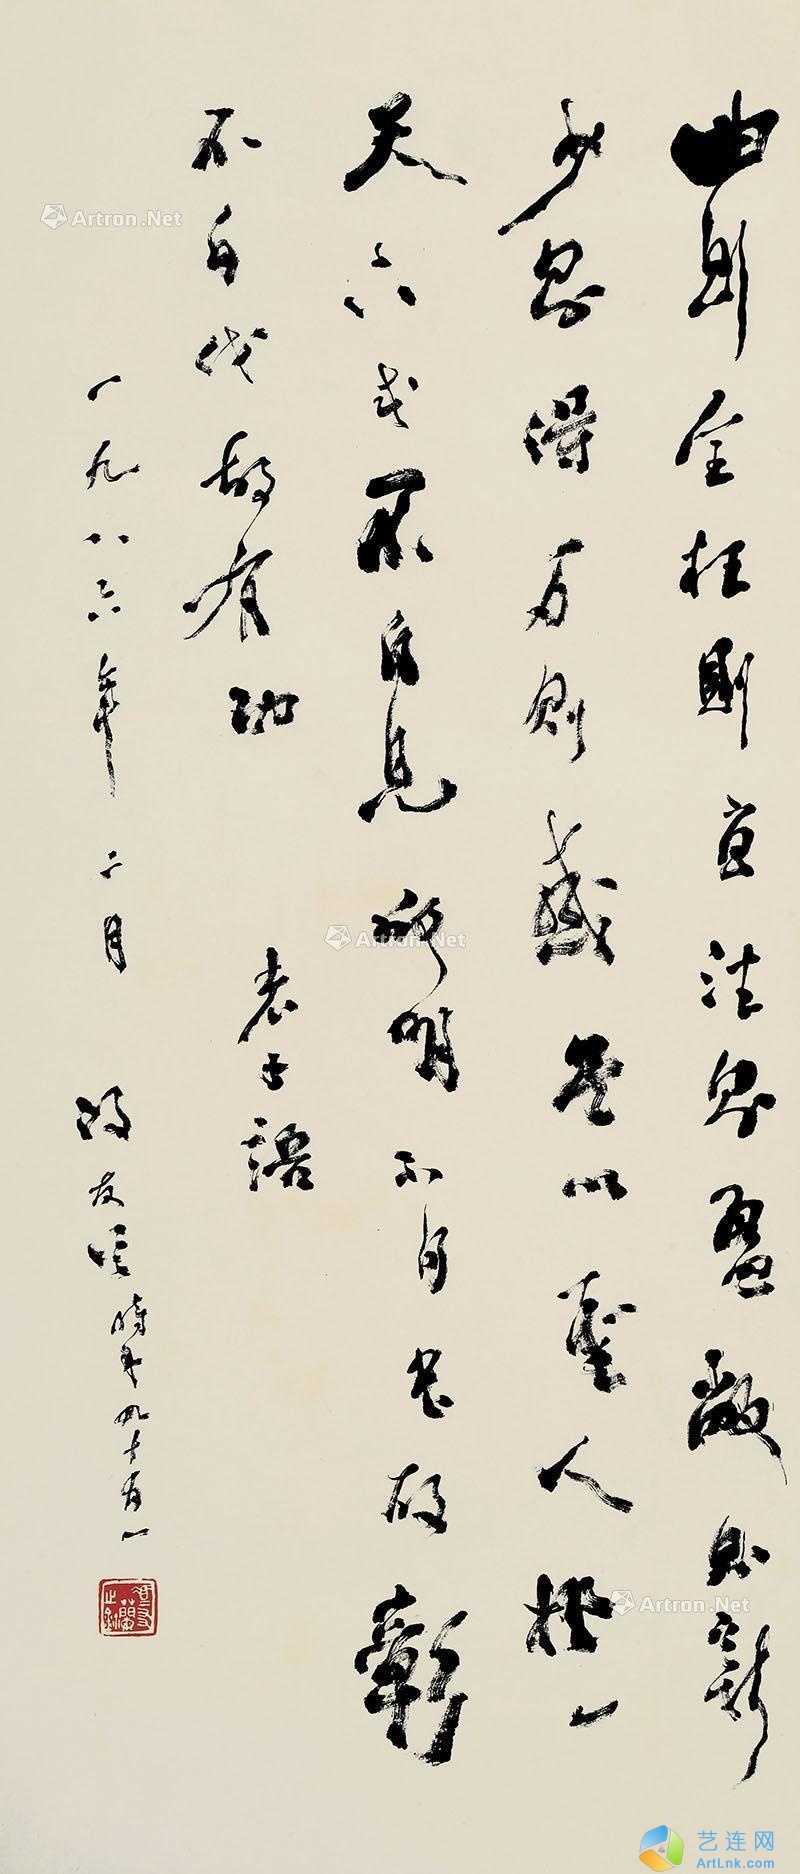 曲則全枉則直洼則盈敝則新
少則得多則惑是以聖人抱一
天下式不自見故明不自是故彰
不自伐故有功 老子語
一九八六年二月 冯友兰時年九十有一
Artron.Net
Artron.Net
Artron.Net
Artron.Net
艺连网
ArtLnk.com